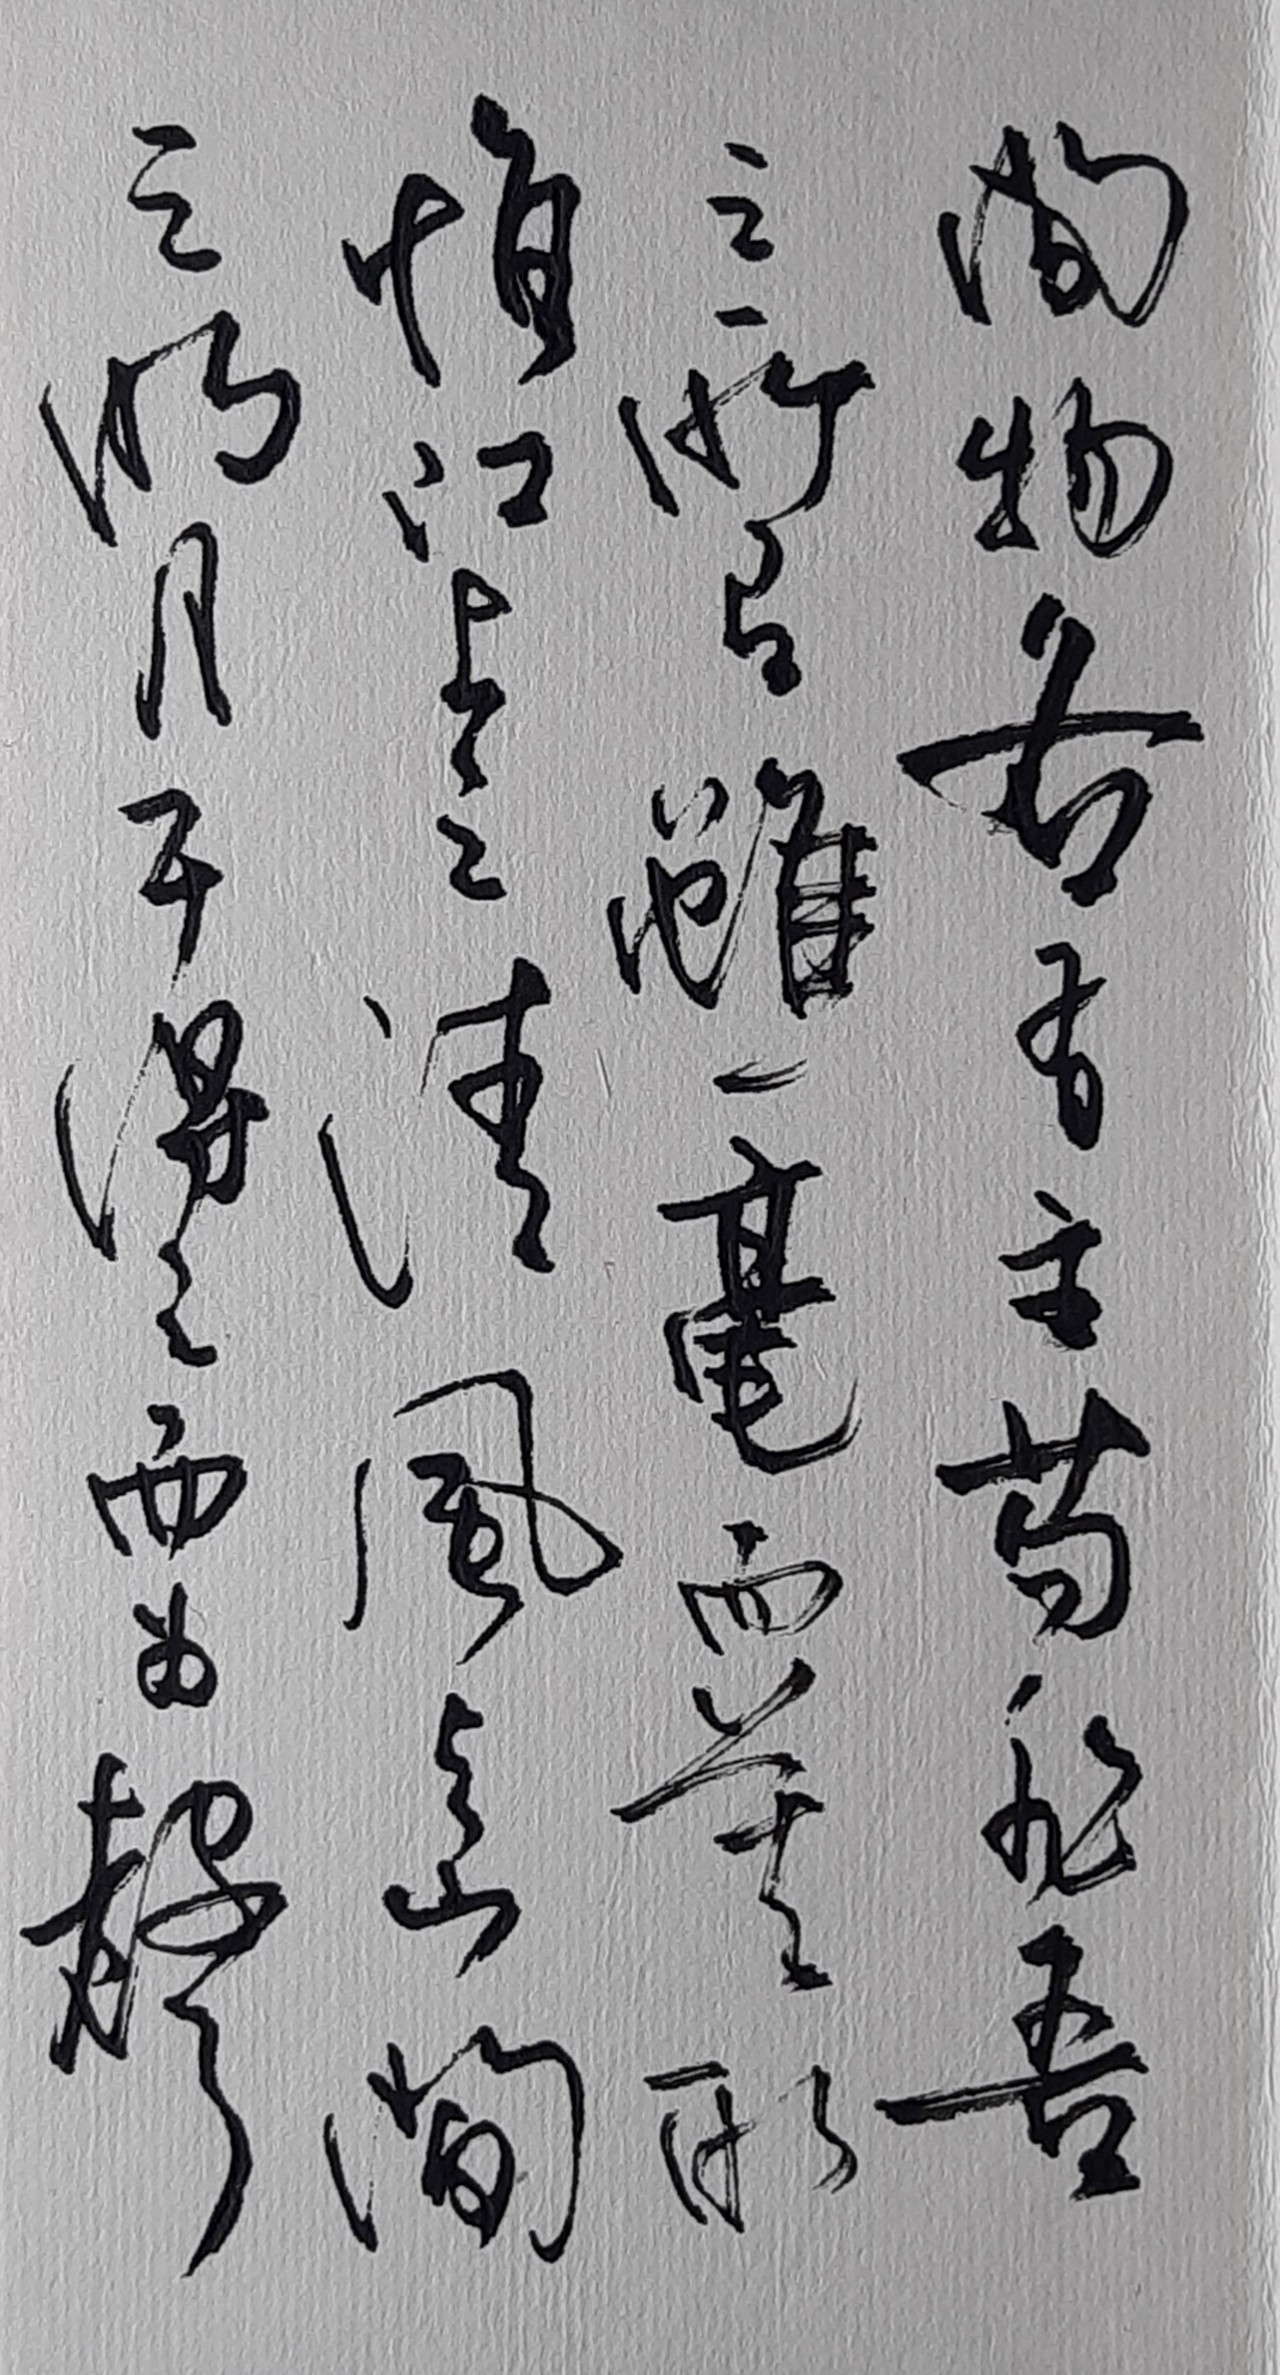 間物各有主苟非吾
之所有雖一毫而莫取
惟江上之清風與山間
之明月耳得之而為聲